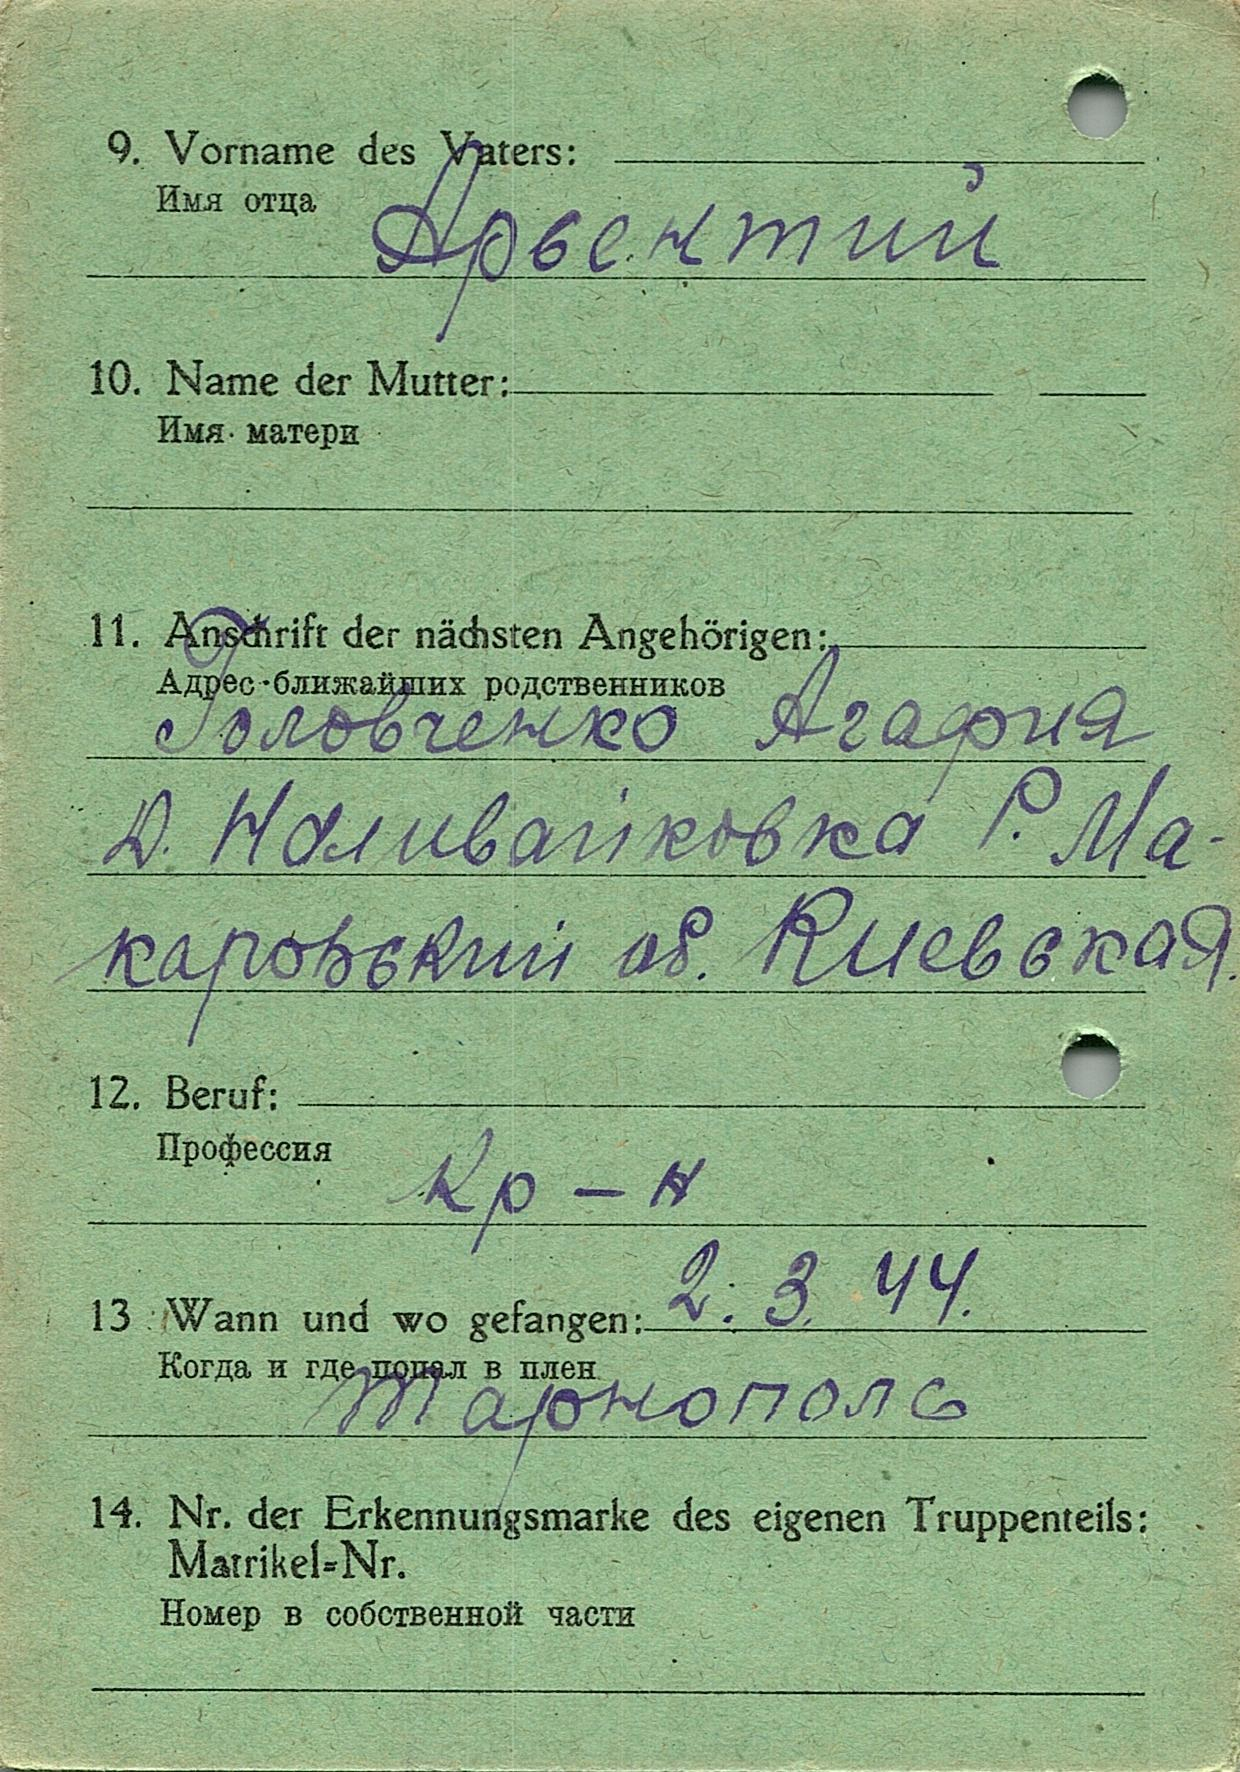 9. Vorname des Vaters:
Имя отца
Арьентий
10. Name der Mutter:
Имя матери
11. Anschrift der nächsten Angehörigen:
Адрес ближайших родственников
Головченко Агафия
д. Наливайковка Р. Ма-
каровский об. Киевская.
12. Beruf:
Профессия
Кр – н
13 Wann und wo gefangen: 2. 3. 44.
Когда и где попал в плен
Тарнополь
14. Nr. der Erkennungsmarke des eigenen Truppenteils:
Matrikel=Nr.
Номер в собственной части